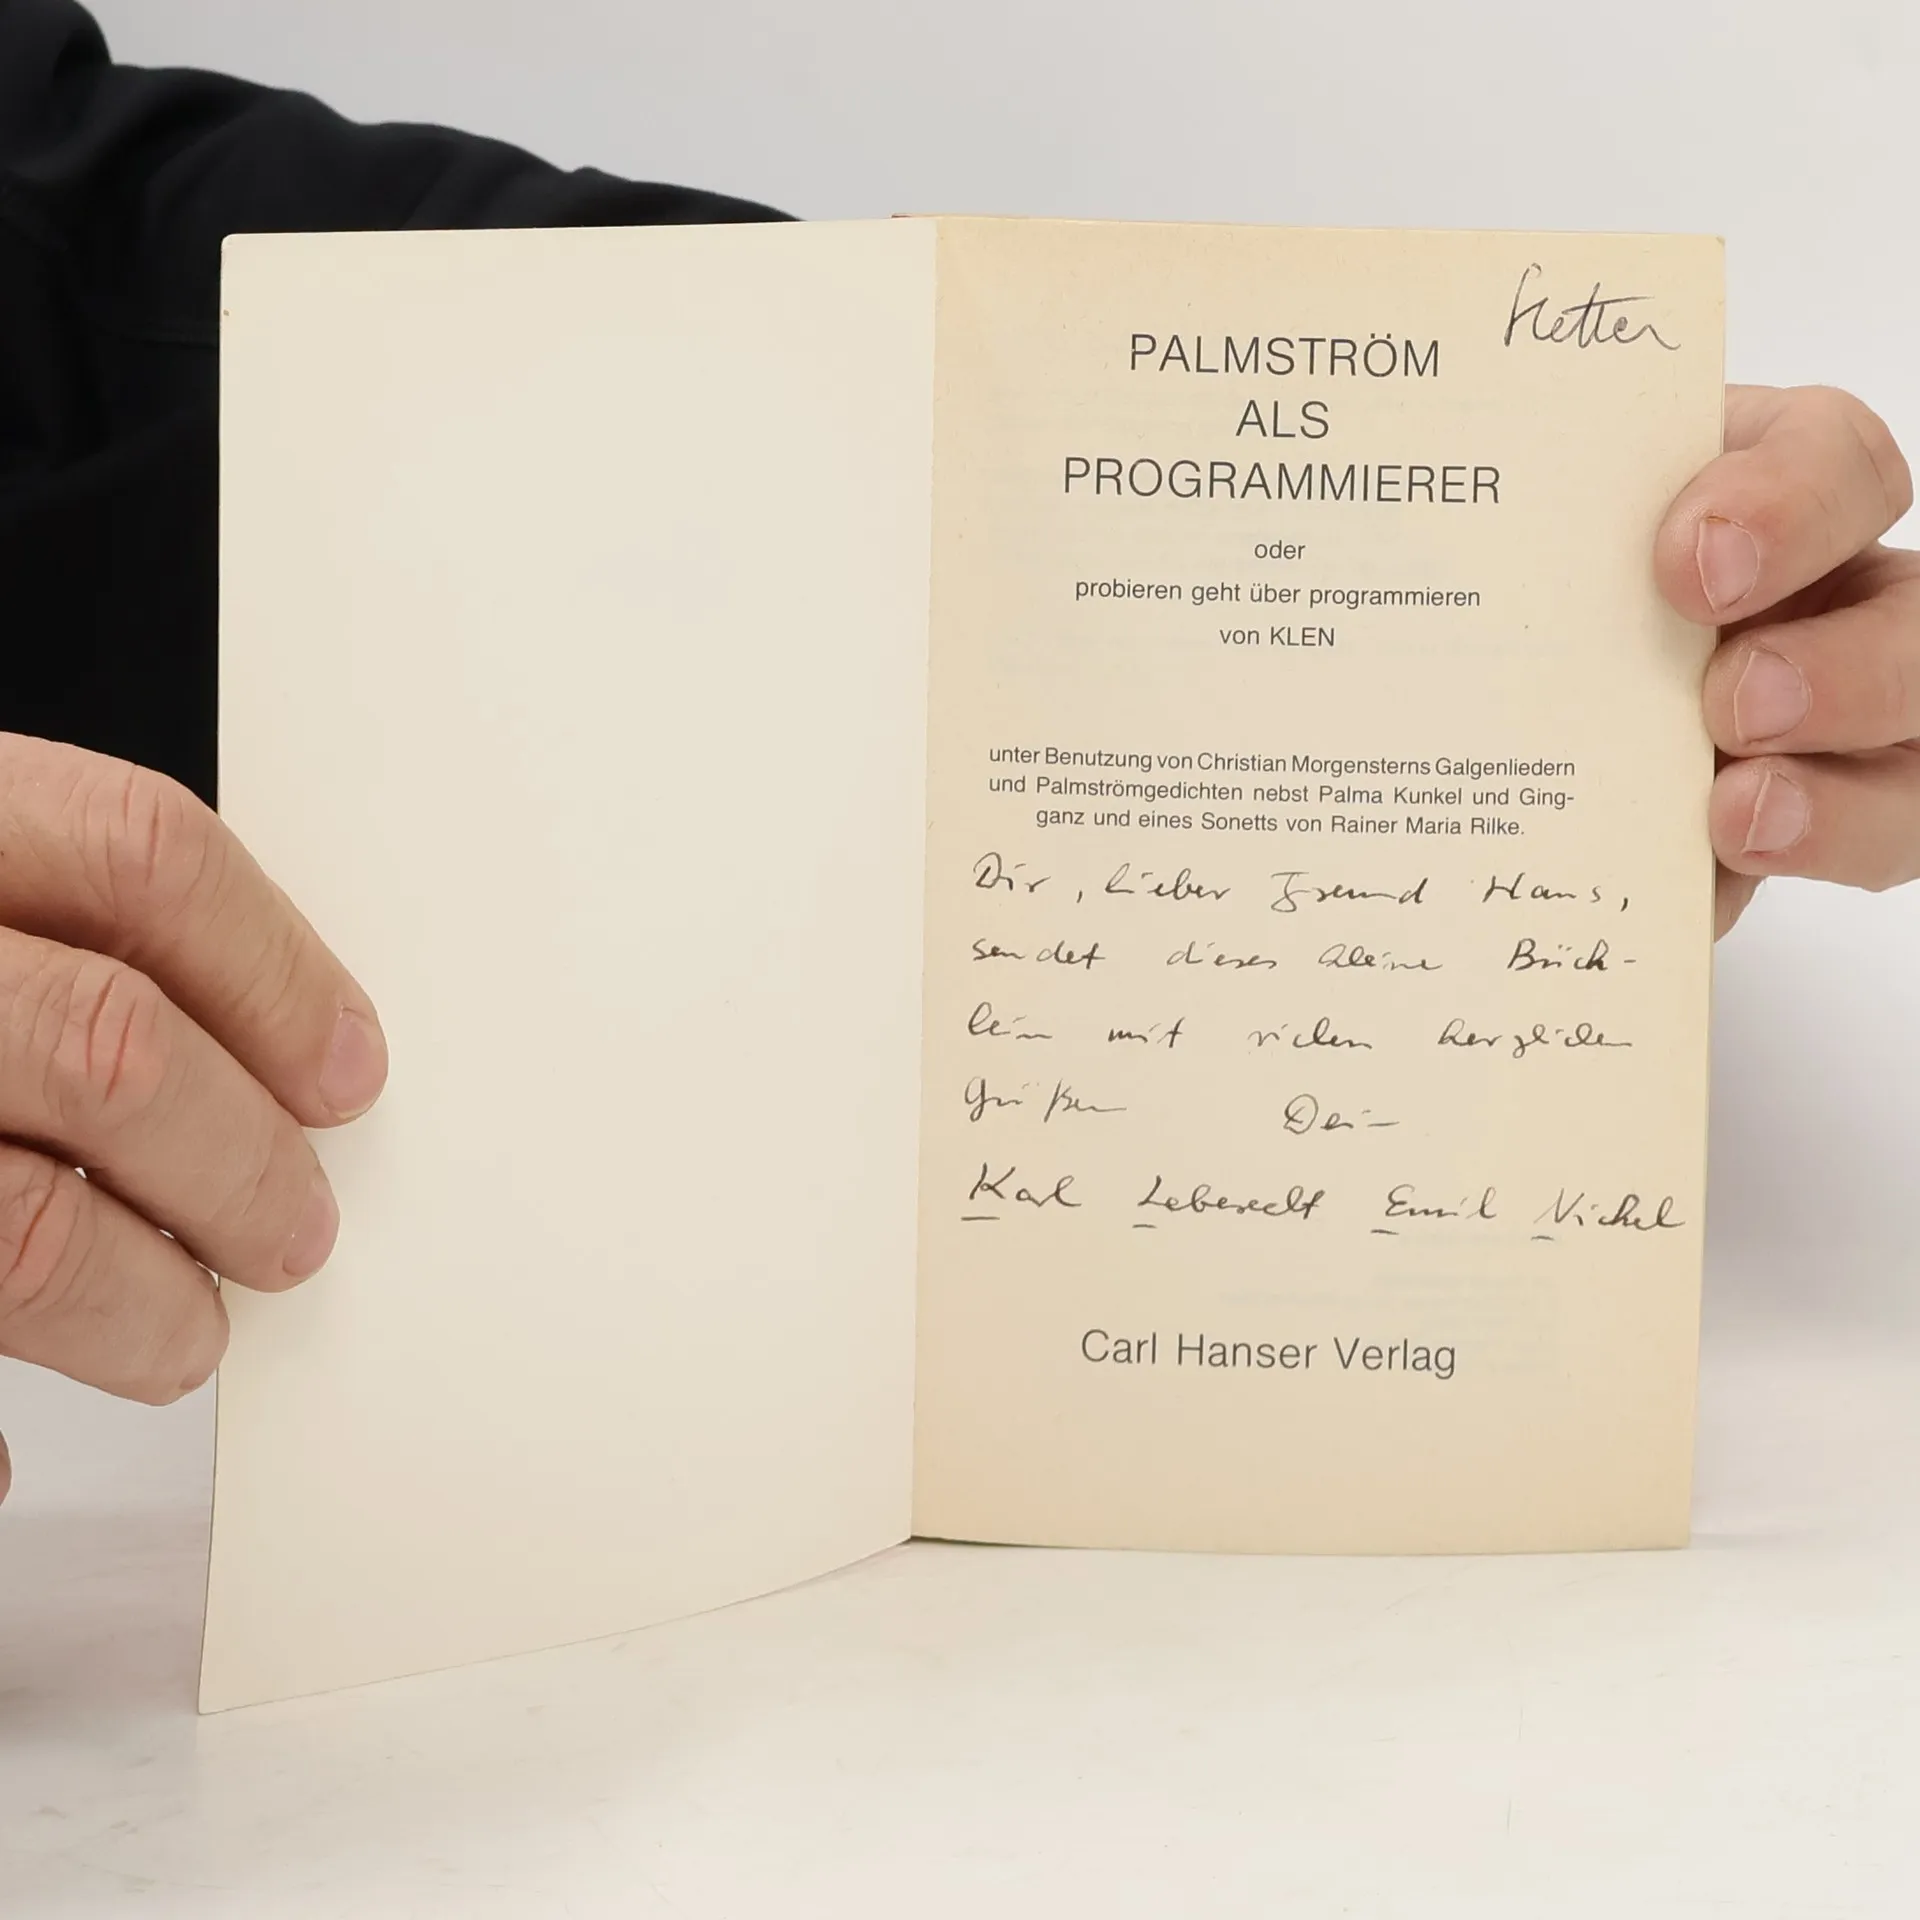 PALMSTRÖM
ALS
PROGRAMMIERER
oder
probieren geht über programmieren
von KLEN
unter Benutzung von Christian Morgensterns Galgenliedern
und Palmströmgedichten nebst Palma Kunkel und Ging-
ganz und eines Sonetts von Rainer Maria Rilke.
Dir, lieber Freund Hans,
sendet dieses kleine Büch-
lein mit vielen herzlichen
Grüßen Dein
Karl Leberecht Emil Nickel
Carl Hanser Verlag